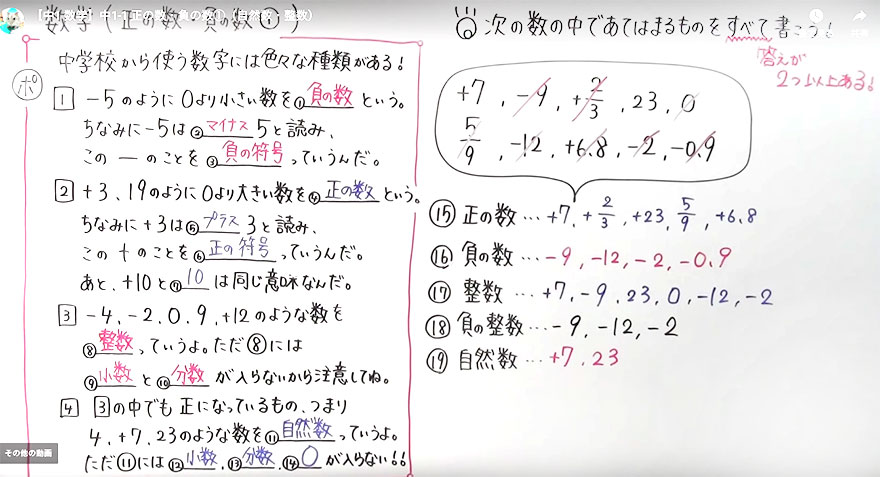 【中1 数学】中1-1 正の数・負の数①(自然数・整数)
数学(正の数・負の数①)
中学校から使う数字には色々な種類がある!
ポ
1 -5のように0より小さい数を①負の数という。
ちなみに-5は②マイナス5と読み、
この-のことを③負の符号っていうんだ。
2 +3、19のように0より大きい数を④正の数という。
ちなみに+3は⑤プラス3と読み、
この+のことを⑥正の符号っていうんだ。
あと、+10と⑦10は同じ意味なんだ。
3 -4、-2、0、9、+12のような数を
⑧整数っていうよ。ただ⑧には
⑨小数と⑩分数が入らないから注意してね。
4 3の中でも正になっているもの、つまり
4、+7、23のような数を⑪自然数っていうよ。
ただ⑪には⑫小数、⑬分数、⑭0が入らない!!
次の数の中であてはまるものをすべて書こう!
答えが
2つ以上ある!
+7, -9, +2/3, 23, 0
5/9, -12, +6.8, -2, -0.9
⑮ 正の数…+7, +2/3, +23, 5/9, +6.8
⑯ 負の数…-9, -12, -2, -0.9
⑰ 整数…+7, -9, 23, 0, -12, -2
⑱ 負の整数…-9, -12, -2
⑲ 自然数…+7, 23
その他の動画